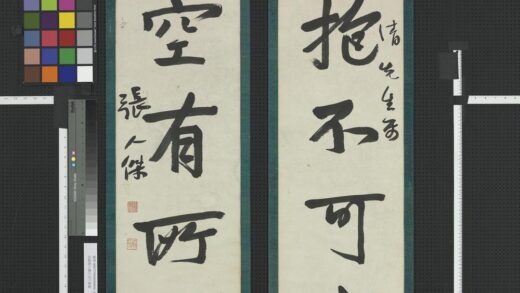 清先生
抱不可
空有所
張人傑